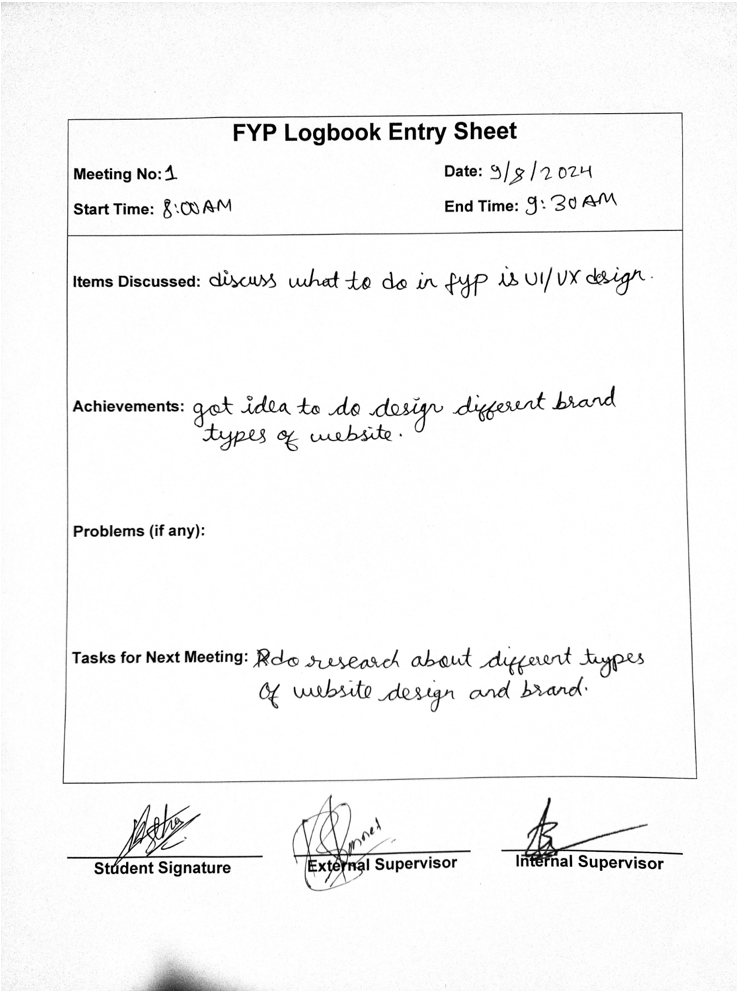 FYP Logbook Entry Sheet
Meeting No: 1 Date: 9/8/2024
Start Time: 8:00 AM End Time: 9:30 AM
Items Discussed: discuss what to do in fyp is UI/UX design.
Achievements: got idea to do design different brand
types of website.
Problems (if any):
Tasks for Next Meeting: do research about different types
of website design and brand.
Student Signature External Supervisor Internal Supervisor